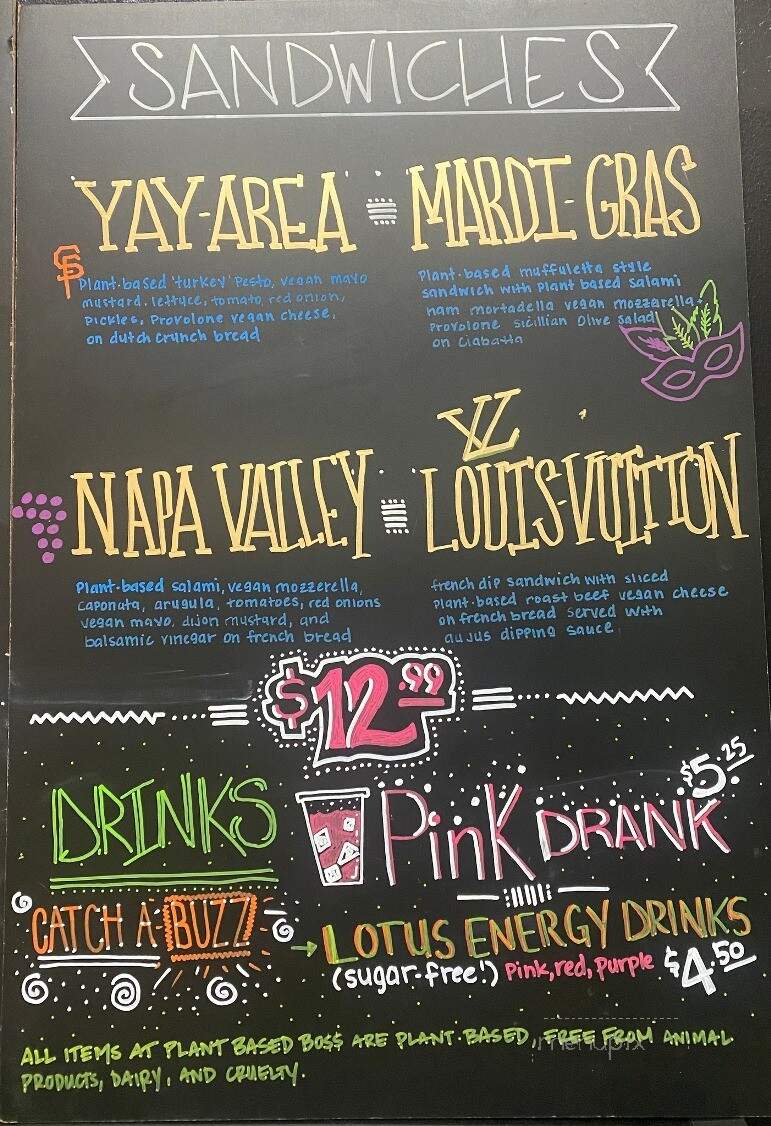 SANDWICHES
YAY-AREA
MARDI-GRAS
SF
Plant-based 'turkey' Pesto, vegan mayo
mustard, lettuce, tomato, red onion,
Pickles, Provolone vegan cheese,
on dutch crunch bread
Plant-based muffuletta style
sandwich with Plant based salami
ham mortadella vegan mozzarella
Provolone Sicillian Olive Salad
on Ciabatta
NAPA VALLEY
LV
LOUIS-VUITTON
Plant-based salami, vegan mozzerella,
caponata, arugula, tomatoes, red onions
vegan mayo, dijon mustard, and
balsamic vinegar on french bread
french dip sandwich with sliced
Plant-based roast beef vegan cheese
on french bread served with
au jus dipping sauce
$12.99
DRINKS
Pink DRANK $5.25
CATCH A BUZZ
LOTUS ENERGY DRINKS
(sugar-free!) Pink, red, Purple $4.50
ALL ITEMS AT PLANT BASED BO$$ ARE PLANT-BASED, FREE FROM ANIMAL
PRODUCTS, DAIRY, AND CRUELTY.
menupix